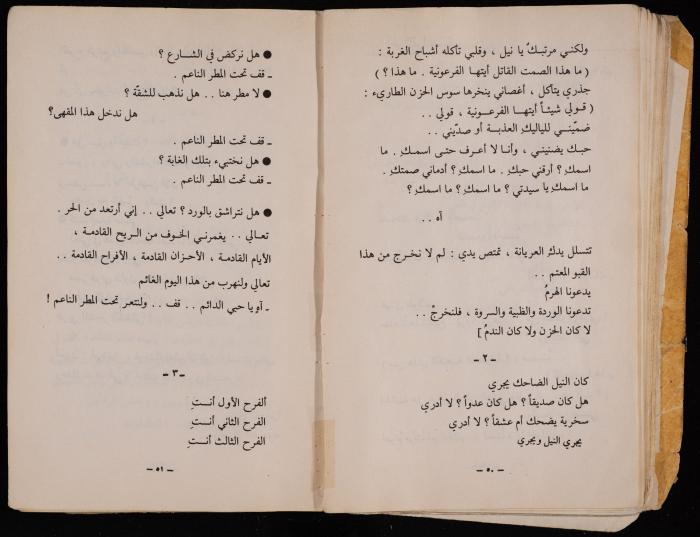 ولكني مرتبكٌ يا نيل ، وقلبي تأكله أشباح الغربة :
( ما هذا الصمت القاتل أيتها الفرعونية . ما هذا ؟ )
جذري يتآكل ، أغصاني ينخرها سوس الحزن الطارىء :
( قولي شيئاً أيتها الفرعونية ، قولي . .
ضمّيني للياليك العذبة أو صدّيني . .
حبك يضنيني ، وأنا لا أعرف حتى اسمكِ . ما
اسمك ؟ أرقني حبك . ما اسمكِ ؟ أدماني صمتكِ .
ما اسمكِ يا سيدتي ؟ ما اسمكِ ؟ ما اسمكِ ؟
آه . .
تتسلل يدكِ العريانة ، تمتص يدي : لم لا نخرج من هذا
القبو المعتم . .
يدعونا الهرمُ
تدعونا الوردة والظبية والسروة ، فلنخرجْ . .
لا كان الحزن ولا كان الندمُ ]
ـ ٢ ـ
كان النيل الضاحك يجري
هل كان صديقاً ؟ هل كان عدواً ؟ لا أدري
سخرية يضحك أم عشقاً ؟ لا أدري
يجري النيل ويجري
ـ ٥٠ ـ
● هل نركض في الشارع ؟
ـ قف تحت المطر الناعم .
● لا مطر هنا . . هل نذهب للشقّة ؟
هل ندخل هذا المقهى ؟
ـ قف تحت المطر الناعم .
● هل نختبيء بتلك الغابة ؟
ـ قف تحت المطر الناعم .
● هل نتراشق بالورد ؟ تعالي . . إني أرتعد من الحر .
تعالي . . يغمرني الخوف من الريح القادمة ،
الأيام القادمة ، الأحزان القادمة ، الأفراح القادمة . .
تعالي ولنهرب من هذا اليوم الغائم
ـ آه يا حبي الدائم . . قف . . ولنتعر تحت المطر الناعم !
ـ ٣ ـ
ألفرح الأول أنتِ
الفرح الثاني أنتِ
الفرح الثالث أنتِ
ـ ٥١ ـ